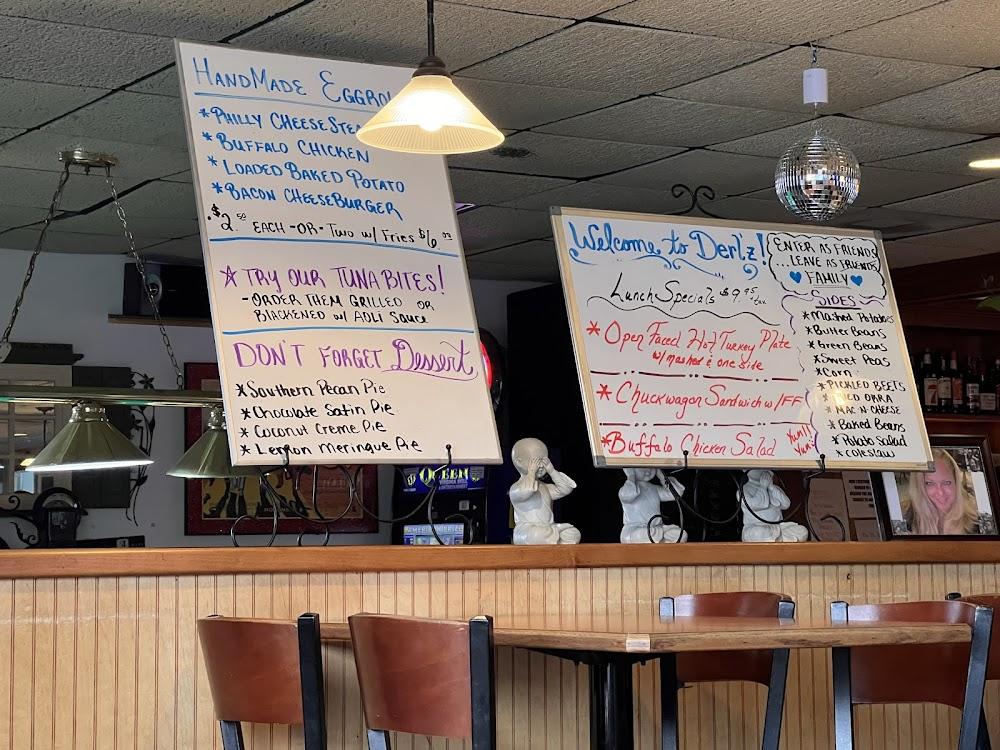 HandMade
* Philly Cheese
* Buffalo Chicken
* Loaded Baked Potato
* Bacon CheeseBurger
$2.50 each -or- Two w/ Fries $6.00
* Try our Tuna Bites!
- Order them Grilled or
Blackened w/ Aoli Sauce
Don't Forget Dessert
* Southern Pecan Pie
* Chocolate Satin Pie
* Coconut Creme Pie
* Lemon Meringue Pie
Welcome to Derl'z!
Lunch Specials $9.95 +tax
* Open Faced Hot Turkey Plate
w/ mashed & one side
* Chuckwagon Sandwich w/ FF
* Buffalo Chicken Salad
Yum!!
Yum!
Enter as Friends
...Leave as Friends
Family
Sides
* Mashed Potatoes
* Butter Beans
* Green Beans
* Sweet Peas
* Corn
* Pickled Beets
* Okra
* Mac n Cheese
* Baked Beans
* Potato Salad
* Coleslaw
Queen